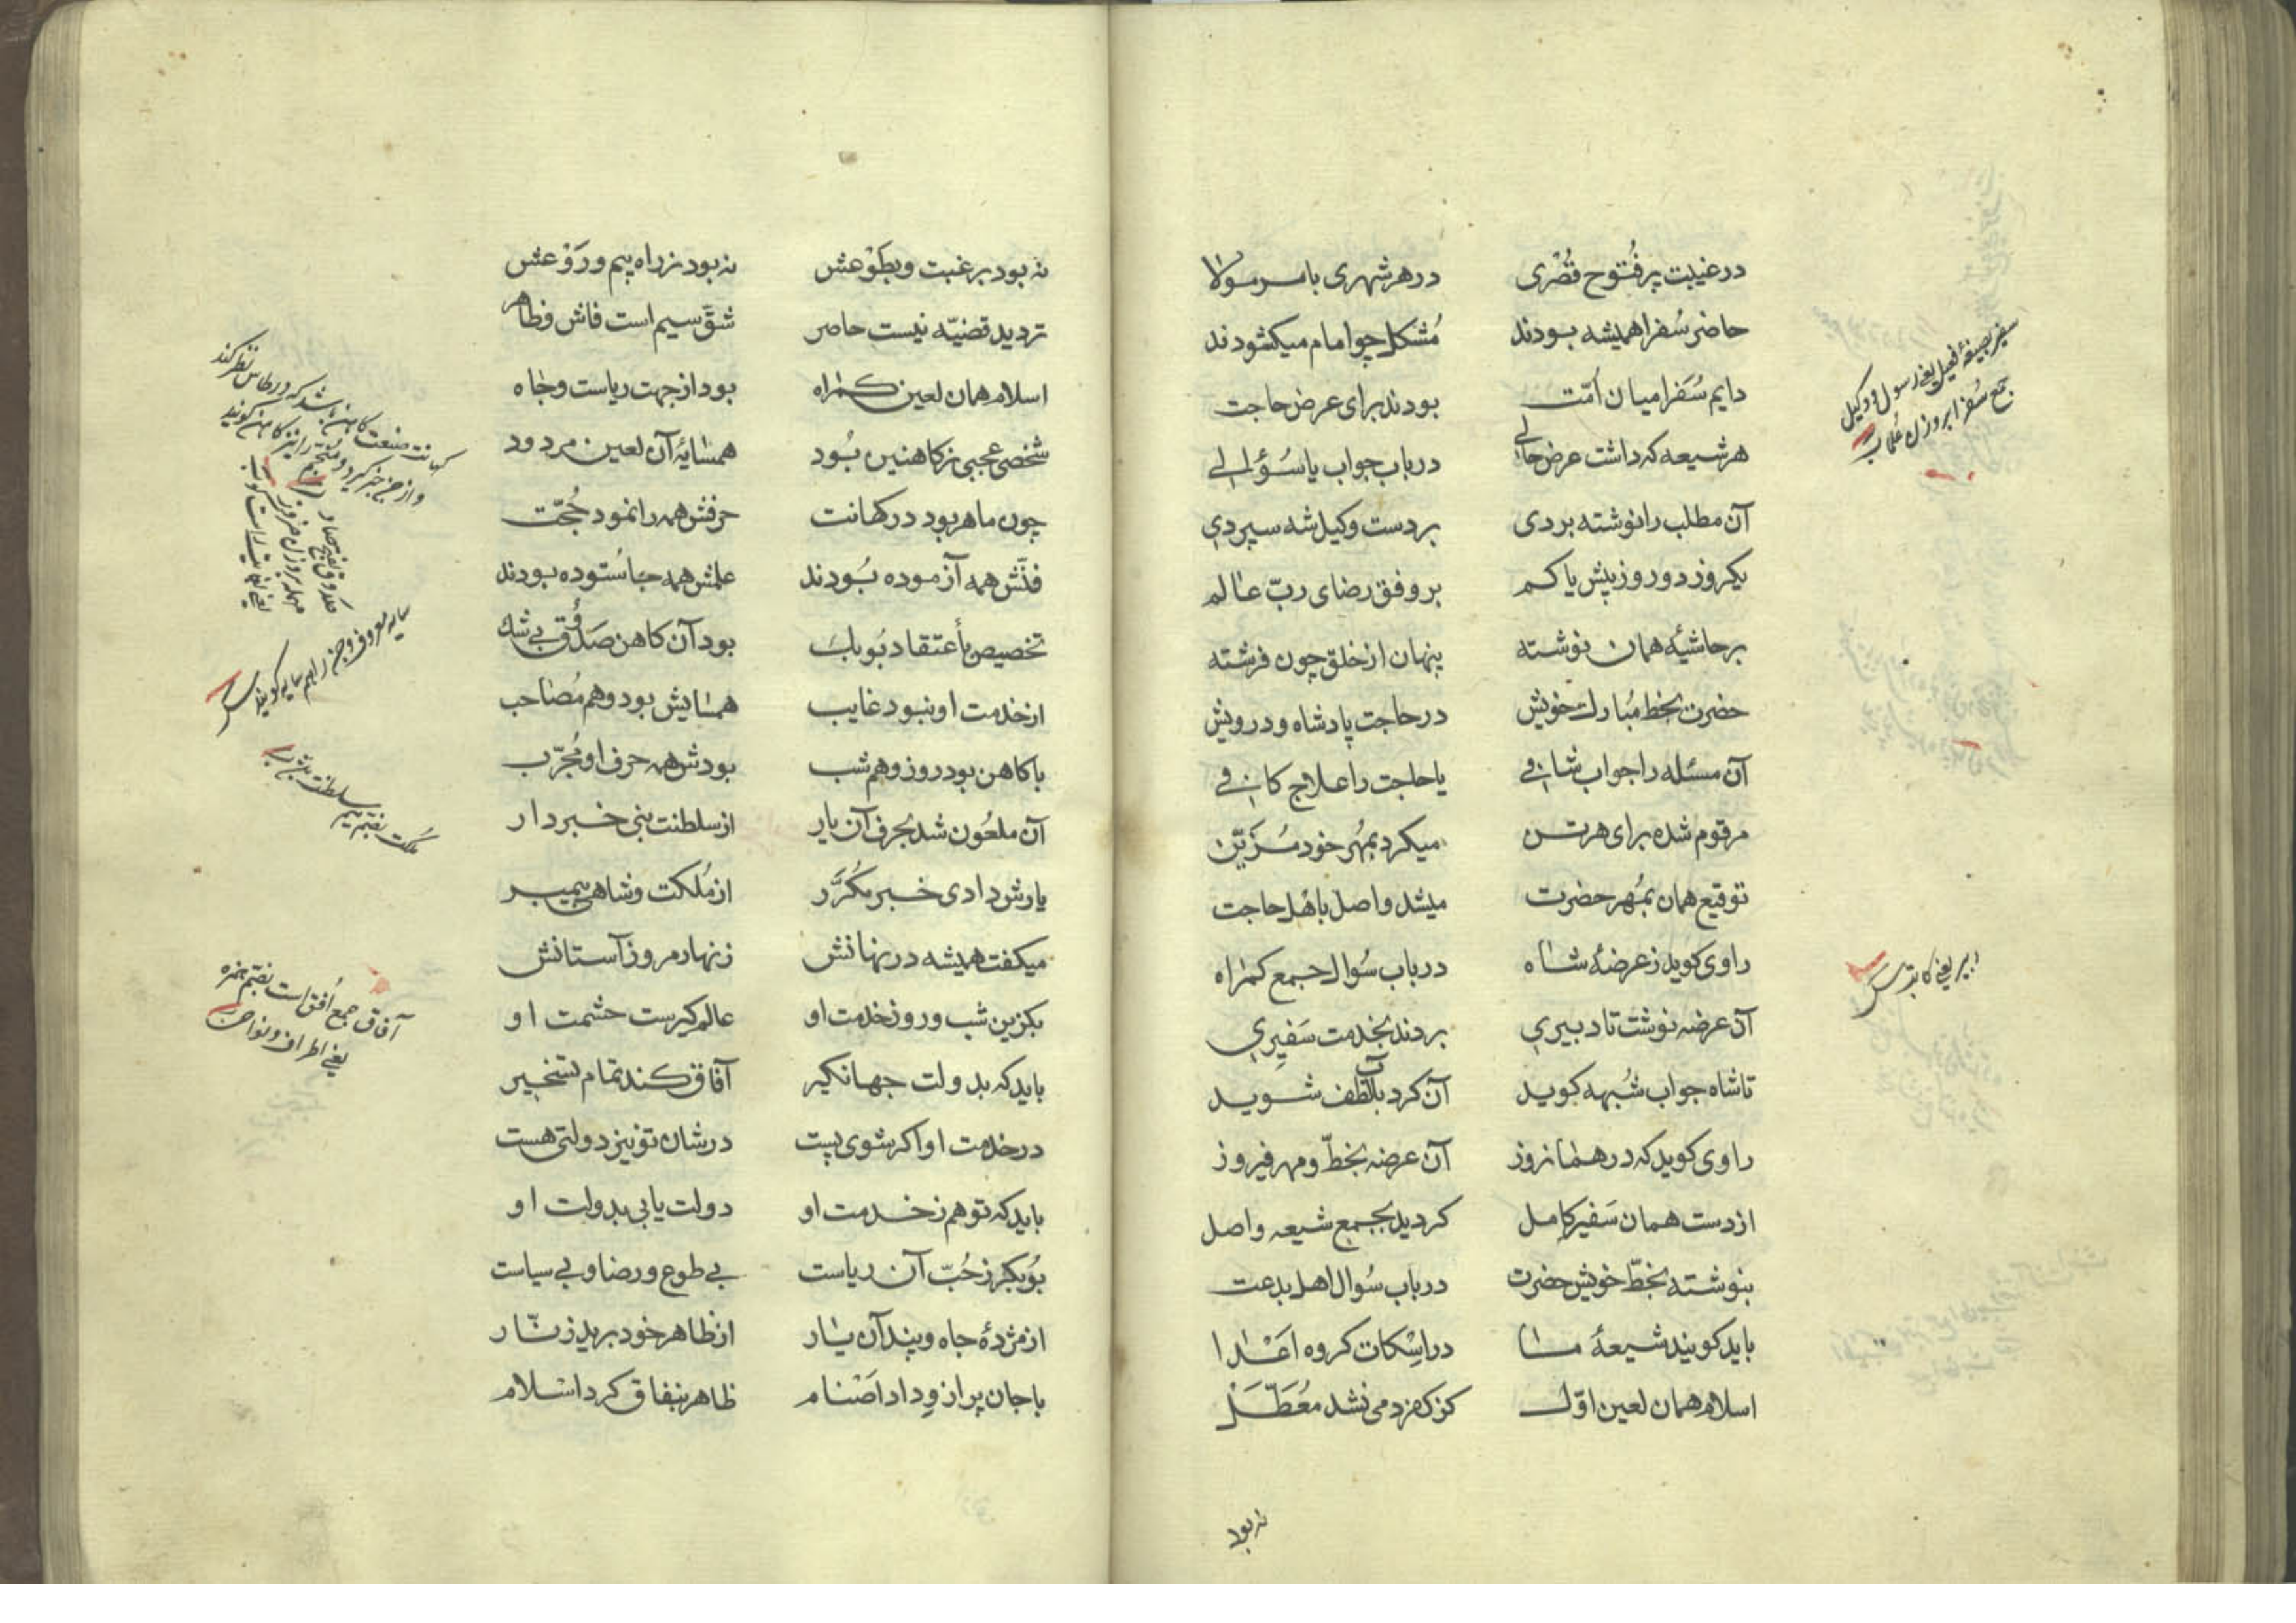 در غیبت پر فُتوح قُصْری در هر شهری بامر مولا
حاضر سُفرا همیشه بودند مُشکل چو امام میکشودند
دایم سُفَرا میان اُمّت بودند برای عرض حاجت
هر شیعه که داشت عرض حالی در باب جواب یا سُؤالی
آن مطلب را نوشته بردی بر دست وکیل شه سپردی
یکروز دو روز پیش یا کم بر وفق رضای ربّ عالم
بر حاشیهٔ همان نوشته پنهان از خلق چون فرشته
حضرت بخط مُبارک خویش در حاجت پادشاه و درویش
آن مسئله را جواب شافی یا حاجت را علاج کافی
مرقوم شده برای هر تن میکرد بمُهر خود مُزَیّن
توقیع همان بمُهر حضرت میشد واصل باهل حاجت
راوی کوید ز عرضهٔ شاه در باب سُوال جمع کمراه
آن عرضه نوشت تا دبیری بردند بخدمت سَفیری
تا شاه جواب شُبهه کوید آن کرد بلطف شوید
راوی کوید که در همانروز آن عرضه بخطّ و مهر فیروز
از دست همان سَفیر کامل کردید بجمع شیعه واصل
بنوشته بخطّ خویش حضرت در باب سُوال اهل بدعت
باید کویند شیعهٔ ما در اِسْکات کروه اَعْدا
اسلام همان لعین اوّل کز کفر دمی نشد مُعَطَّل
نه بود
سفیر بصیغهٔ فعیل یعنی رسول و وکیل
جمع سُفرا بر وزن عُلما
دبیر یعنی کاتب
نه بود برغبت و بطَوْعش نه بود ز راه بیم و رَوْعش
تردید قضیّه نیست حاصر شقّ سیم است فاش و ظاهر
اسلام همان لعین کمراه بود از جهت ریاست و جاه
شخصی عجبی ز کاهنین بُود همسایهٔ آن لعین مردود
چون ماهر بود در کهانت حرفش همه را نمود حُجّت
فنّش همه آزموده بُودند علمش همه جا ستوده بودند
تخصیص بأعتقاد بُوبک بود آن کاهن صَدُوق بی شک
از خدمت او نبود غایب همسایش بود و هم مُصاحب
با کاهن بود روز و هم شب بودش همه حرف او مُجرّب
آن ملعُون شد بحرف آن یار از سلطنت نبی خبردار
یارش دادی خبر مُکَرَّر از مُلکت و شاهی پیمبر
میکفت همیشه در نهانش زنهار مرو ز آستانش
بکزین شب و روز خدمت او عالمکیرست حشمت او
باید که بدولت جهانکیر آفاق کند تمام تسخیر
در خدمت او اکر شوی پست در شان تو نیز دولتی هست
باید که تو هم ز خدمت او دولت یابی بدولت او
بُوبکر ز حُبّ آن ریاست بی طوع و رضا و بی سیاست
از مژدهٔ جاه و پند آن یار از ظاهر خود برید زنّار
با جان پر از وِداد اَصْنام ظاهر بنفاق کرد اسلام
کهانت صنعت کاهن باشد که در طاس نظر کند
و از جن خبر کیرد و منجّم را نیز کاهن کویند
صَدوق بفتح صاد
مهمله بر وزن
یعنی راست کو
سایه معروف و جن را هم سایه کویند
مُلکت بضم میم سلطنت
آفاق جمع اُفق است بضم همزه
یعنی اطراف و نواحی